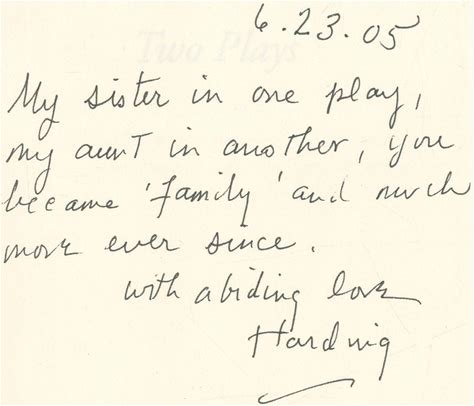 6.23.05
Two Plays
My sister in one play,
my aunt in another, you
became 'family' and much
more ever since.
with abiding love
Harding